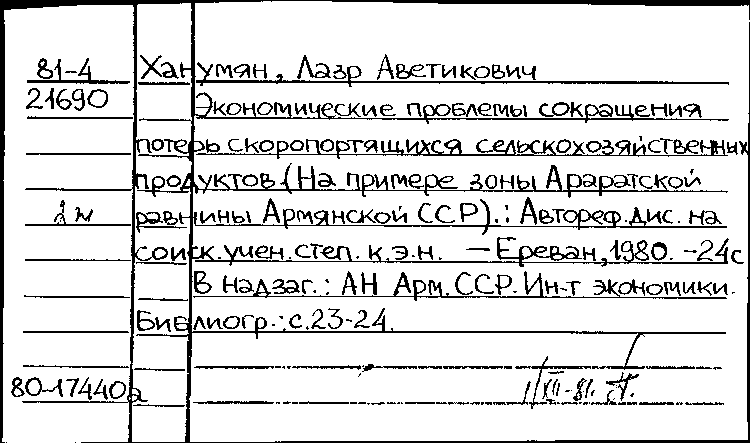 81-4 Ханумян, Лазр Аветикович
21690 Экономические проблемы сокращения
потерь скоропортящихся сельскохозяйственных
продуктов. (На примере зоны Араратской
равнины Армянской ССР).: Автореф. дис. на
соиск. учен. степ. к.э.н. — Ереван, 1980. - 24с
В надзаг.: АН Арм. ССР. Ин-т экономики.
Библиогр.: с. 23-24.
80-17440а